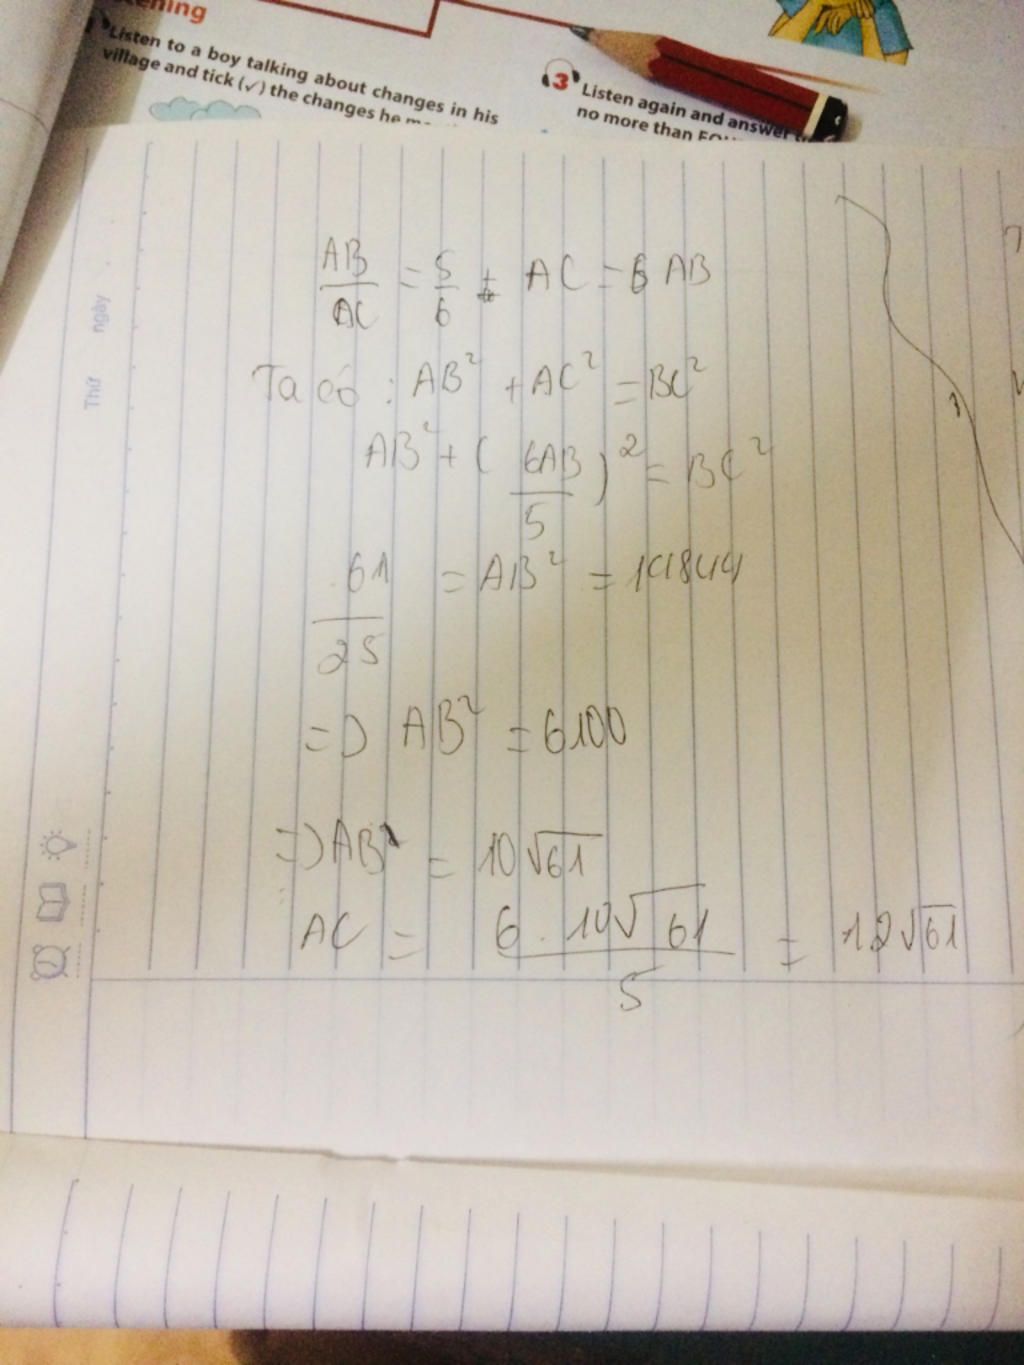 ening
Listen to a boy talking about changes in his
village and tick (✓) the changes he
3 Listen again and answer
no more than
Thứ ngày
AB/AC = 5/6 = AC = 6 AB
Ta có : AB² + AC² = BC²
AB² + ( 6AB/5 )² = BC²
61/25 = AB² = 14844
=> AB² = 6100
=> AB = 10√61
AC = 6.10√61/5 = 12√61